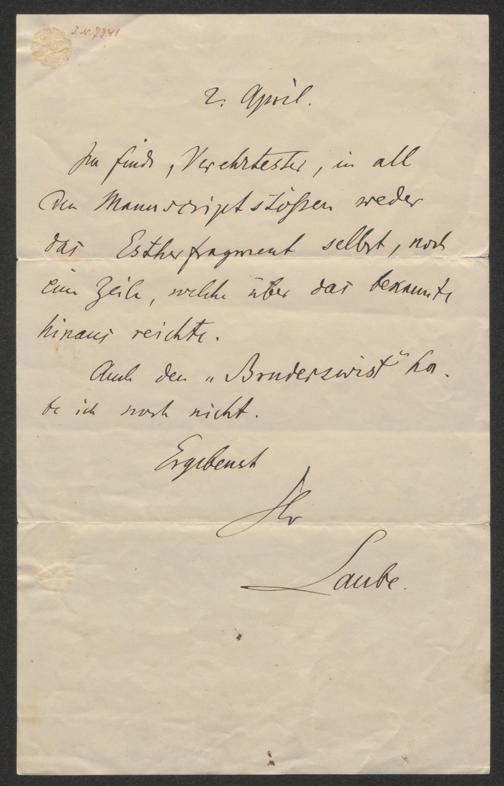 I.N. 7941
2. April.
Ich finde, Verehrtester, in all
den Manuscriptstößen weder
das Estherfragment selbst, noch
eine Zeile, welche über das bekannte
hinaus reichte.
Auch den „Bruderzwist" ha-
be ich noch nicht.
Ergebenst
Ihr
Laube.